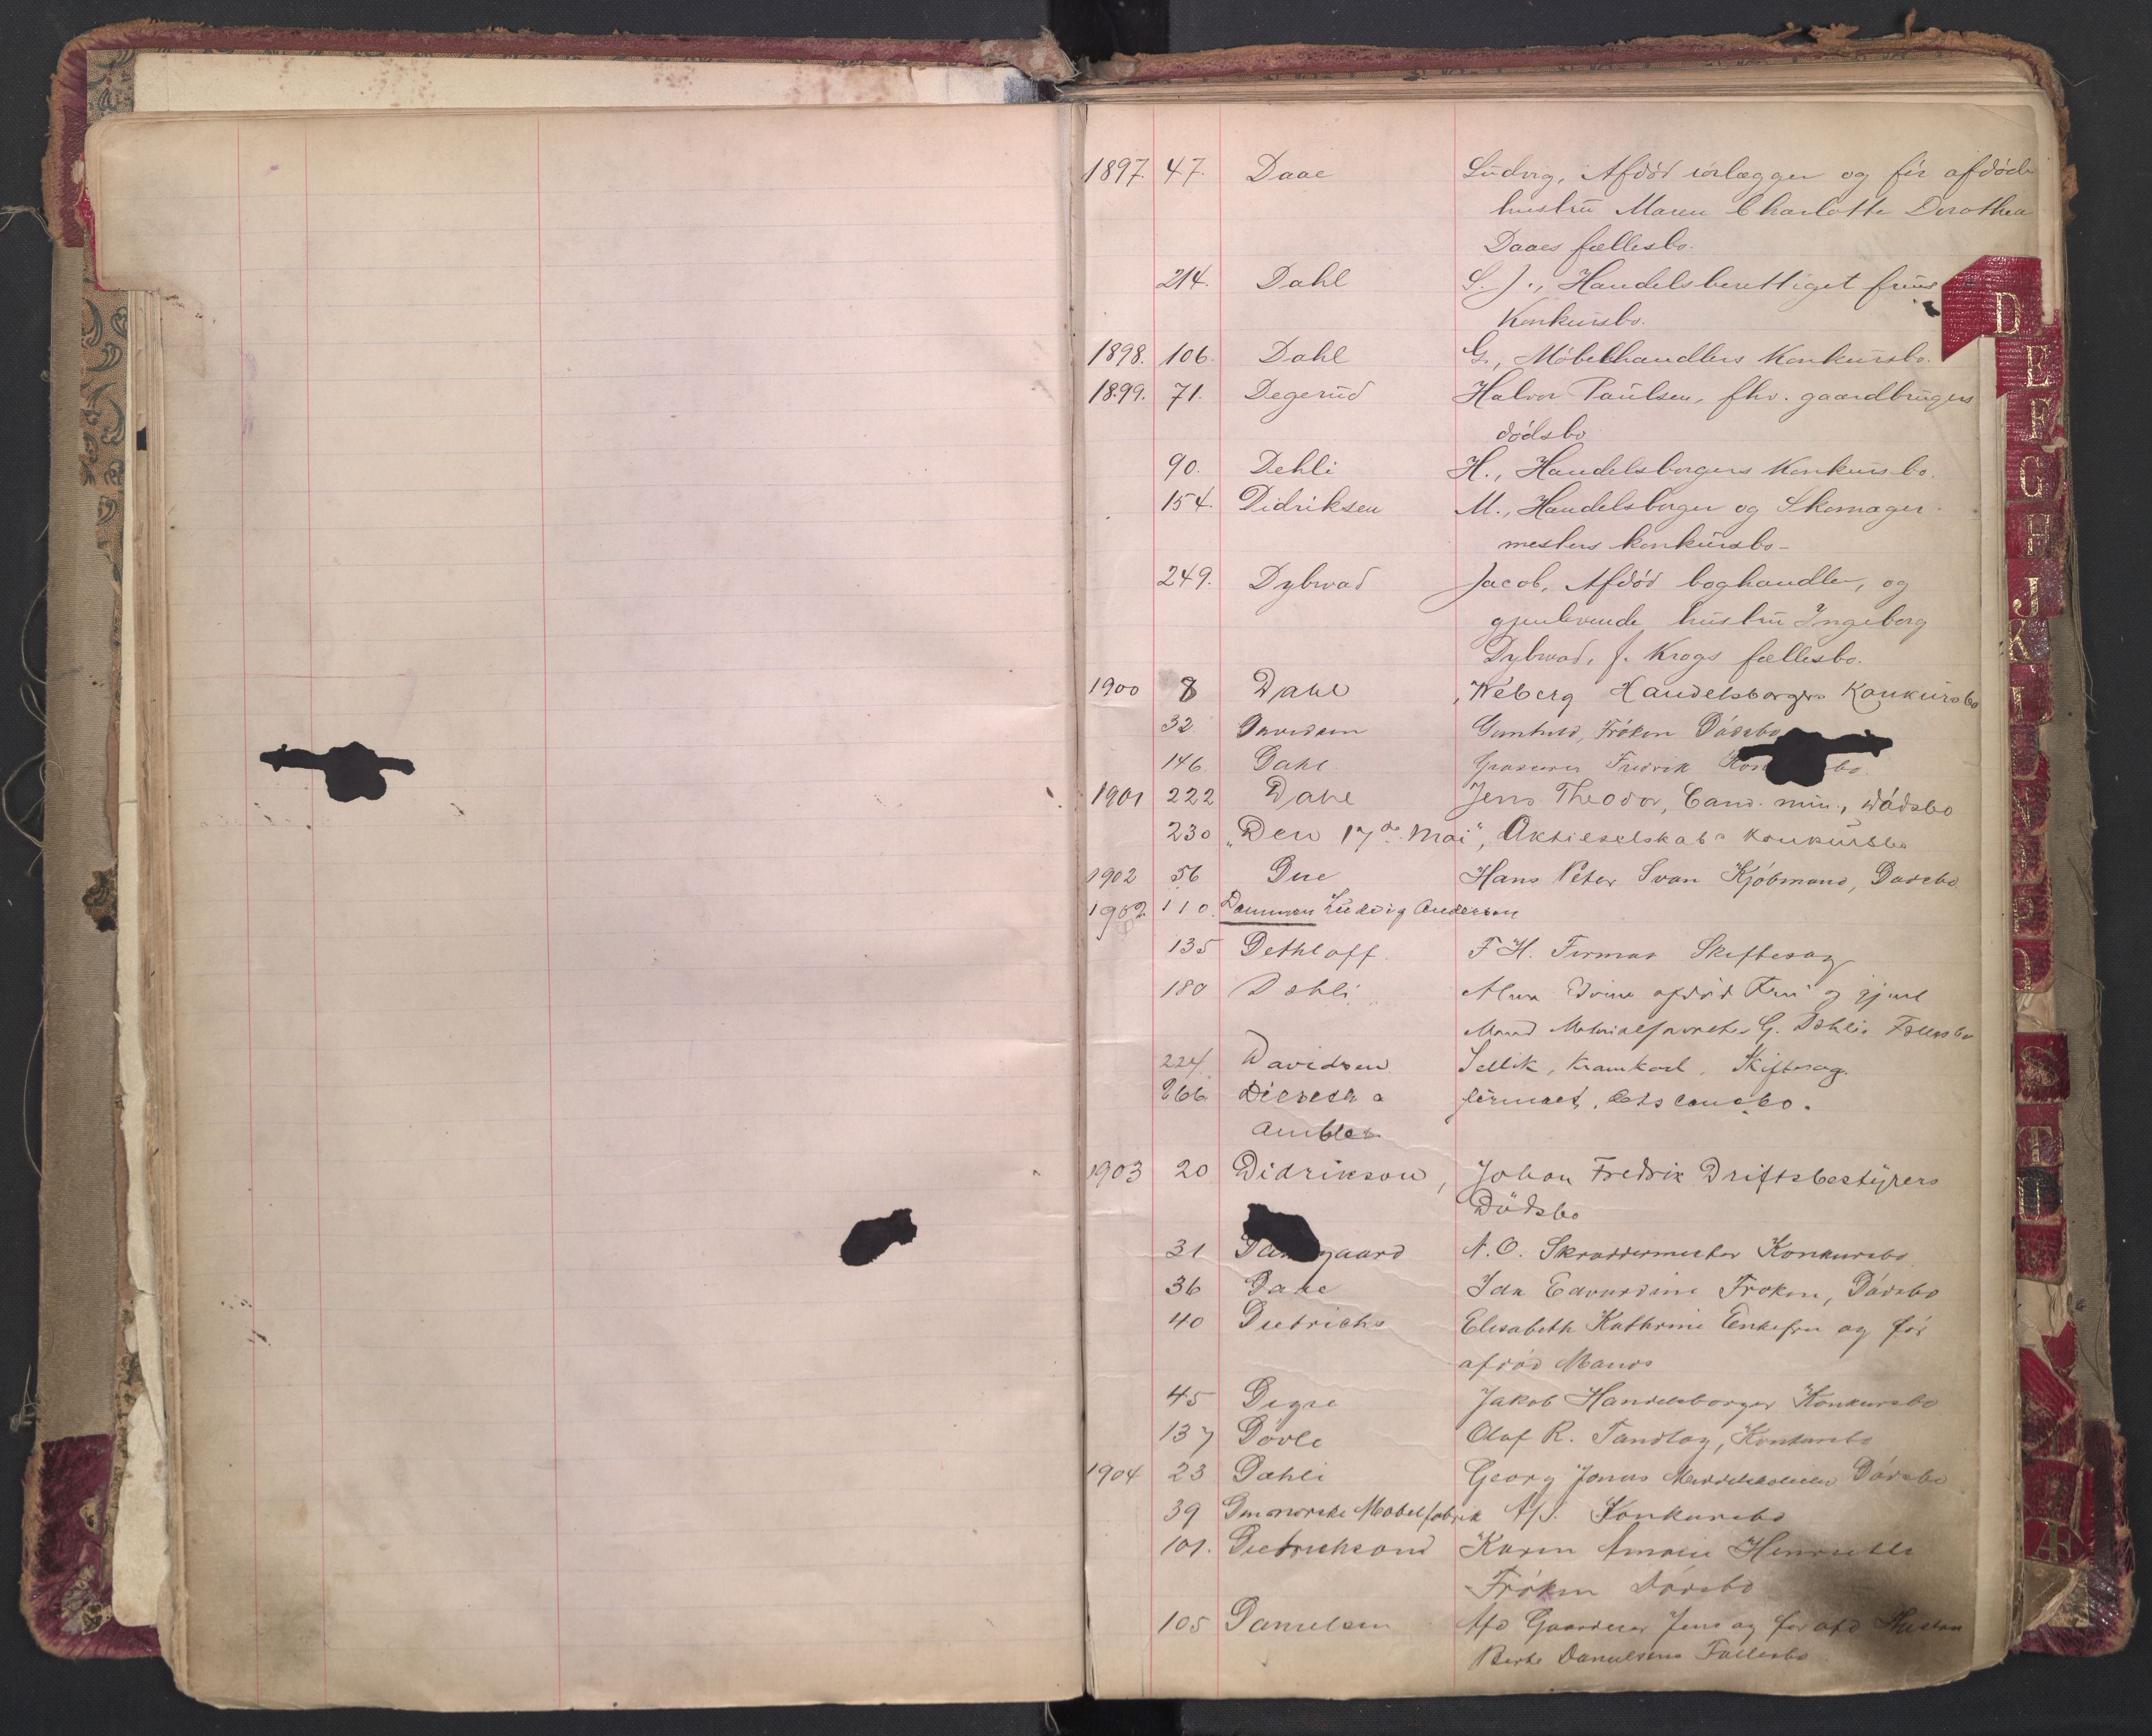 1897. 47. Daae Ludvig, Afdød rørlægger og før afdøde
hustru Maren Charlotte Dorothea
Daaes fællesbo.
214. Dahl S. J., Handelsberettiget frues
Konkursbo.
1898. 106. Dahl G., Møbelhandlers Konkursbo.
1899. 71. Degerud Halvor Paulsen, fhv. gaardbrugers
dødsbo
90. Dehli H., Handelsborgers Konkursbo.
154. Didriksen M., Handelsborger og Skomager-
mesters konkursbo-
249. Dybwad Jacob, Afdød boghandler, og
gjenlevende hustru Ingeborg
Dybwad, f. Krogs fællesbo.
1900 8 Dahl Wéberg Handelsborgers Konkursbo
32. Davidsen Gunhild, Frøken Dødsbo
146. Dahl Fredrik
1901 222 Dahl Jens Theodor, Cand. min., Dødsbo
230 „Den 17de Mai", Aktieselskabs Konkursbo
1902 56 Due Hans Peter Svan Kjøbmand, Dødsbo
1902. 110. Dammen Ludvig Andersen
135 Dethloff. F H. Firmas Skiftesag
180 Dehli afdød Fru og gjenl
Mand Materialforvalter G. Dehlis Fællesbo
224. Davidsen. Sellik, Kramkarl. Skiftesag.
266 a firmaet,
1903 20 Didrikson, Johan Fredrik Driftsbestyrers
Dødsbo
31 N. O. Skræddermester Konkursbo
36 Dahl Ida Edvardine Frøken, Dødsbo
40 Dietrichs Elisabeth Kathrine Enkefru og før
afdød Mands
45 Digre Jakob Handelsborger Konkursbo
137 Dovle Olaf R. Tandlæg, Konkursbo
1904 23 Dahli Georg Jonas Dødsbo
39 Den norske Møbelfabrik A/S. Konkursbo
101. Dietrichsond Karen Amalie Henriette
Frøken Dødsbo
105 Danielsen Afd Gaardeier Jens og før afd Hustru
Berte Danielsens Fællesbo
D
E
F
G
H
J
K
L
S
T
U